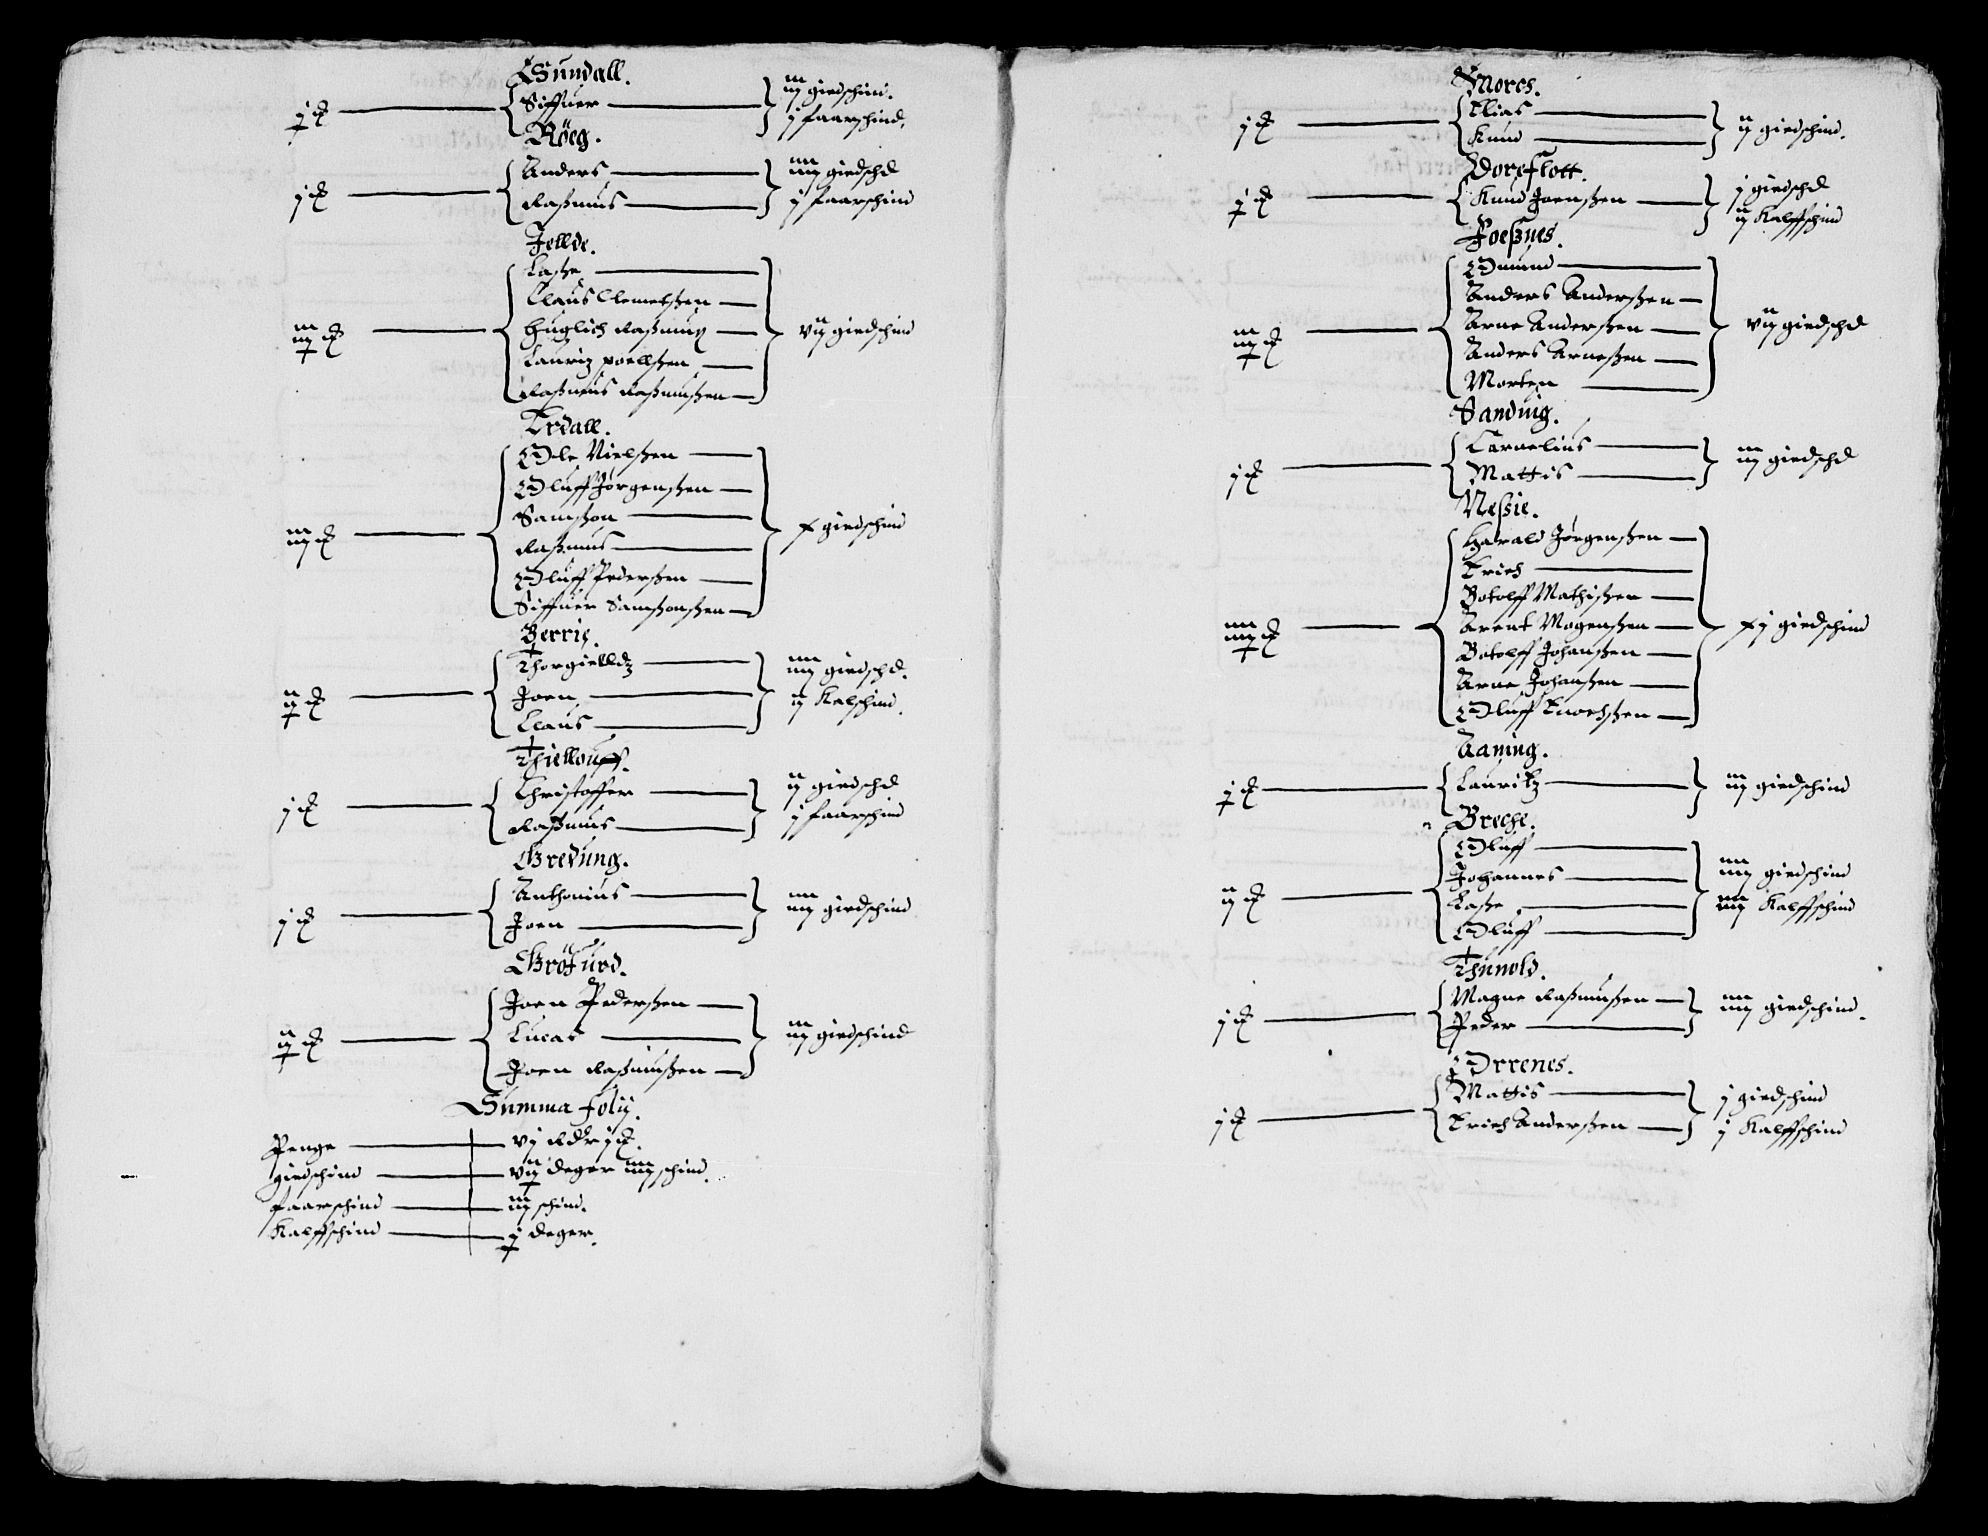 Sundall.
Siffuer
iij giedschind.
j faarschind.
Röeg.
j
Anders
Raßmus
iiij giedschd
j faarschind
Jellde.
Laße
Claus Clemetßen
Huglich Raßmuß
Lauriz poellßen
Raßmus Raßmußen
vij giedschind
Erdall.
Ole Nielßen
Oluff Jørgenßen
Samßon
Raßmus
Oluff Pederßen
Siffuer Samßonßen
x giedschind
Berrie.
Thorgielldz
Joen
Claus
iiij giedschd.
ij Kalschind.
Thiellouff.
j
Christoffer
Raßmus
ij giedschd
j faarschind
Gredung.
j
Anthonius
Joen
iiij giedschind
Joen Pederßen
Lucas
Joen Raßmußen
iij giedschind
Summa folij.
Penge vj Rdr j
giedschind vij deger iiij schind.
faarschind iij schind.
Kalffschind j deger.
Morch.
j
Elias
Knud
ij giedschind.
Doreflott.
Knud Joenßen
j giedschd
ij Kalffschind
Foeßnes.
Omund
Anders Anderßen
Arne Anderßen
Anders Arneßen
Morten
vij giedschd
Sanduig.
j
Carnelius
Mattis
iij giedschd
Neßie.
Harald Jørgenßen
Erich
Botolff Mathißen
Arent Mogenßen
Botolff Johanßen
Arne Johanßen
Oluff Knochßen
xj giedschind
Aaning.
Lauritz
iij giedschind
Breche.
Oluff
Johannes
Laße
Oluff
iiij giedschind
iiij Kalffschind
Thunold.
j
Magne Raßmußen
Peder
iiij giedschind.
Orrenes.
j
Mattis
Erich Anderßen
j giedschind
j Kalffschind